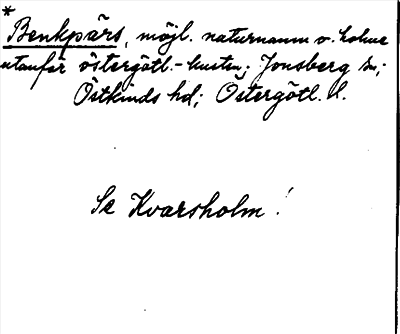 *
Benkpärs, möjl. naturnamn o. holme
utanför östergötl.-kusten; Jonsberg sn;
Östkinds hd; Östergötl. l.
Se Kvarsholm!